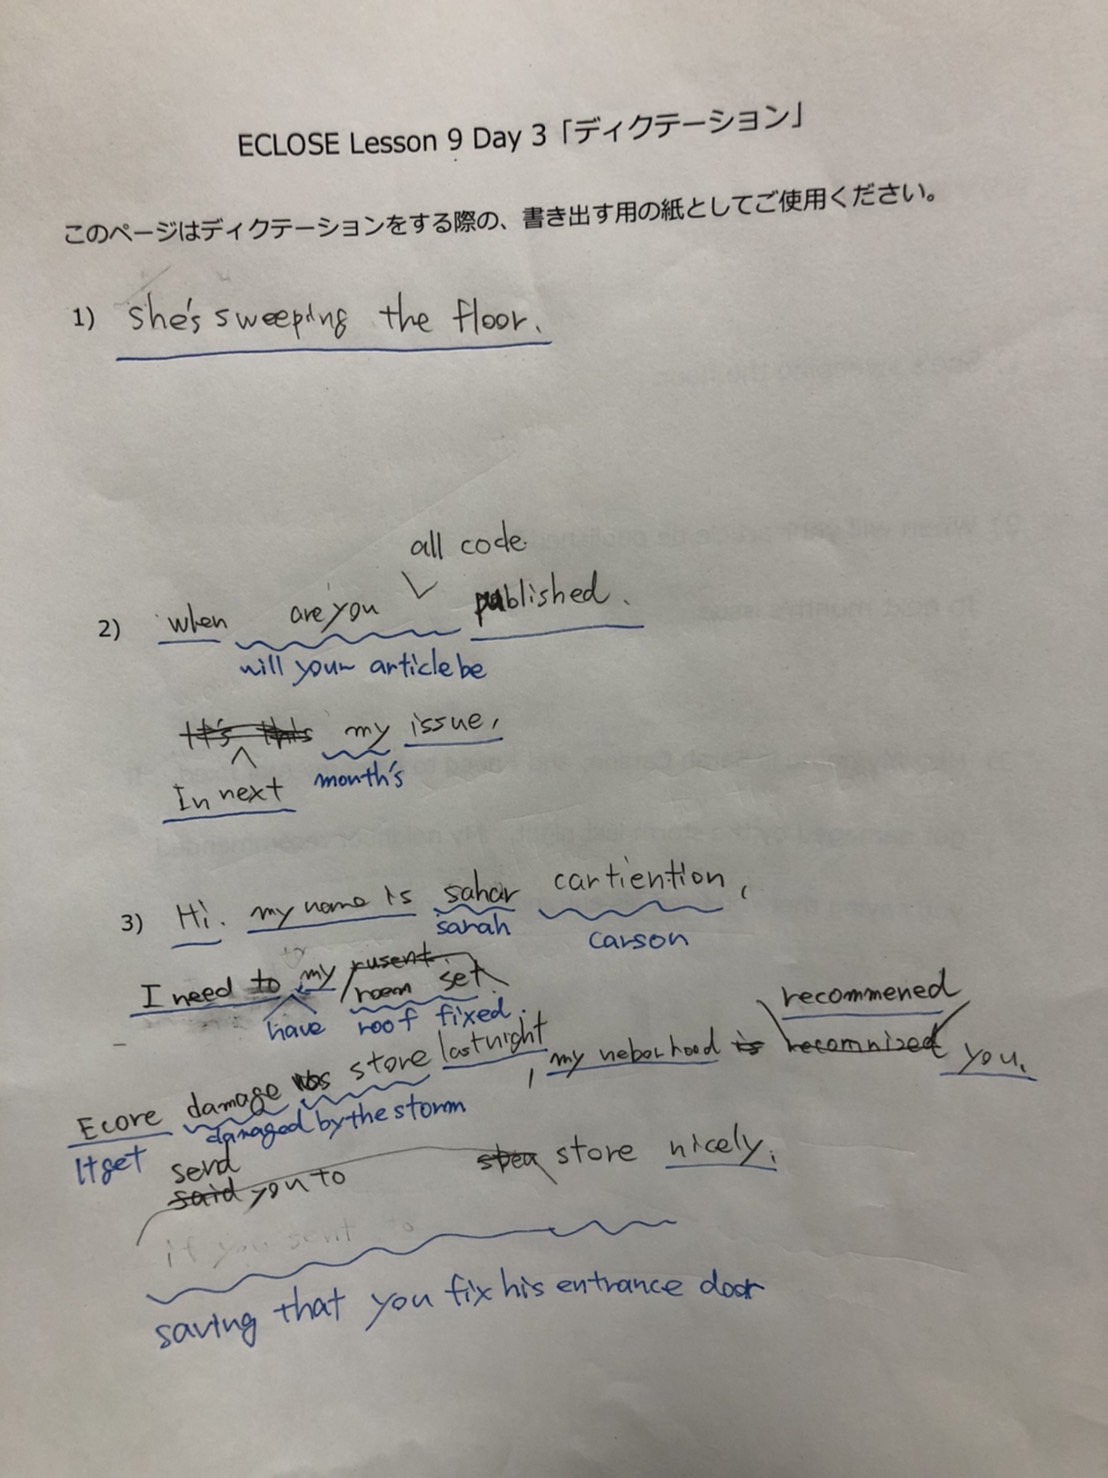 ECLOSE Lesson 9 Day 3「ディクテーション」
このページはディクテーションをする際の、書き出す用の紙としてご使用ください。
1) She's sweeping the floor.
all code.
2) when are you published.
will your article be
It's this my issue,
month's
In next
3) Hi. my name is sahar cartiention,
sarah carson
I need to my rusent
room set.
have roof fixed.
recommened
Ecore damage was store last night, my neborhood is recomnized you.
damaged by the storm
It get
send
said you to store nicely.
saving that you fix his entrance door